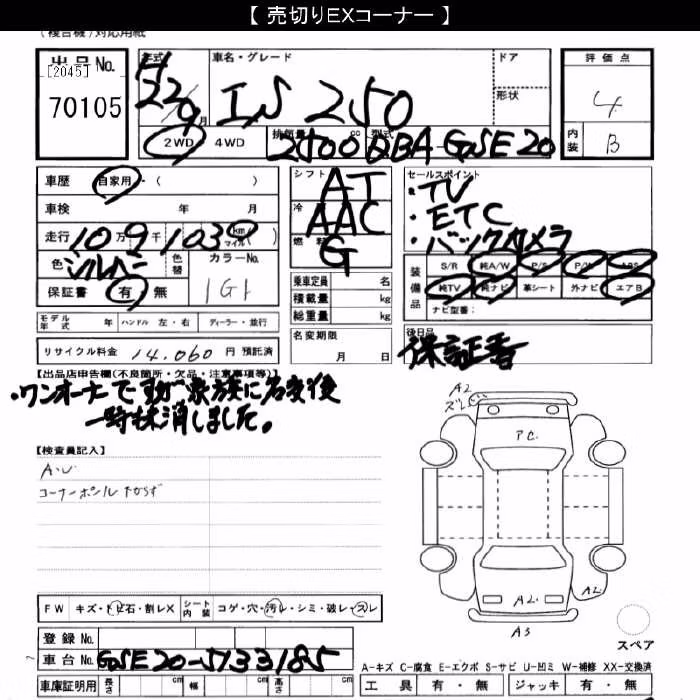 【 売切りEXコーナー 】
(複合機)対応用紙
出品No.
[2045]
70105
年式
H22 9月
車名・グレード
IS 250
ドア
形状
評価点
4
内装
B
2WD 4WD
排気量 cc 型式
2500 DBA GSE20
車歴 自家用・( )
車検 年 月
走行 10万9千103 km マイル( )
色 シルバー
色替
カラーNo.
1G1
保証書 有・無
シフト
AT
冷
AAC
燃料
G
乗車定員 名
積載量 kg
総重量 kg
セールスポイント
・TV
・ETC
・バックカメラ
装備品
S/R 純A/W P/S P/W ABS
純TV 純ナビ 革シート 外ナビ エアB
ナビ型番:
モデル年式 年 ハンドル 左・右 ディーラー・並行
リサイクル料金 14,060 円 預託済
名変期限
月 日
後日品
保証書
【出品店申告欄(不良箇所・欠品・注意事項等)】
・ワンオーナーですが家族に名変後
一時抹消しました。
【検査員記入】
A・U
コーナーポール たわらず
A2
ズレ
PC
A2
A2
A3
スペア
FW キズ・トビ石・割レX シート内装 コゲ・穴・汚レ・シミ・破レ・スレ
登録No.
車台No. GSE20-5133185
車庫証明用 長さ cm 幅 cm 高さ cm
A-キズ C-腐食 E-エクボ S-サビ U-凹ミ W-補修 XX-交換済
工具 有・無 ジャッキ 有・無